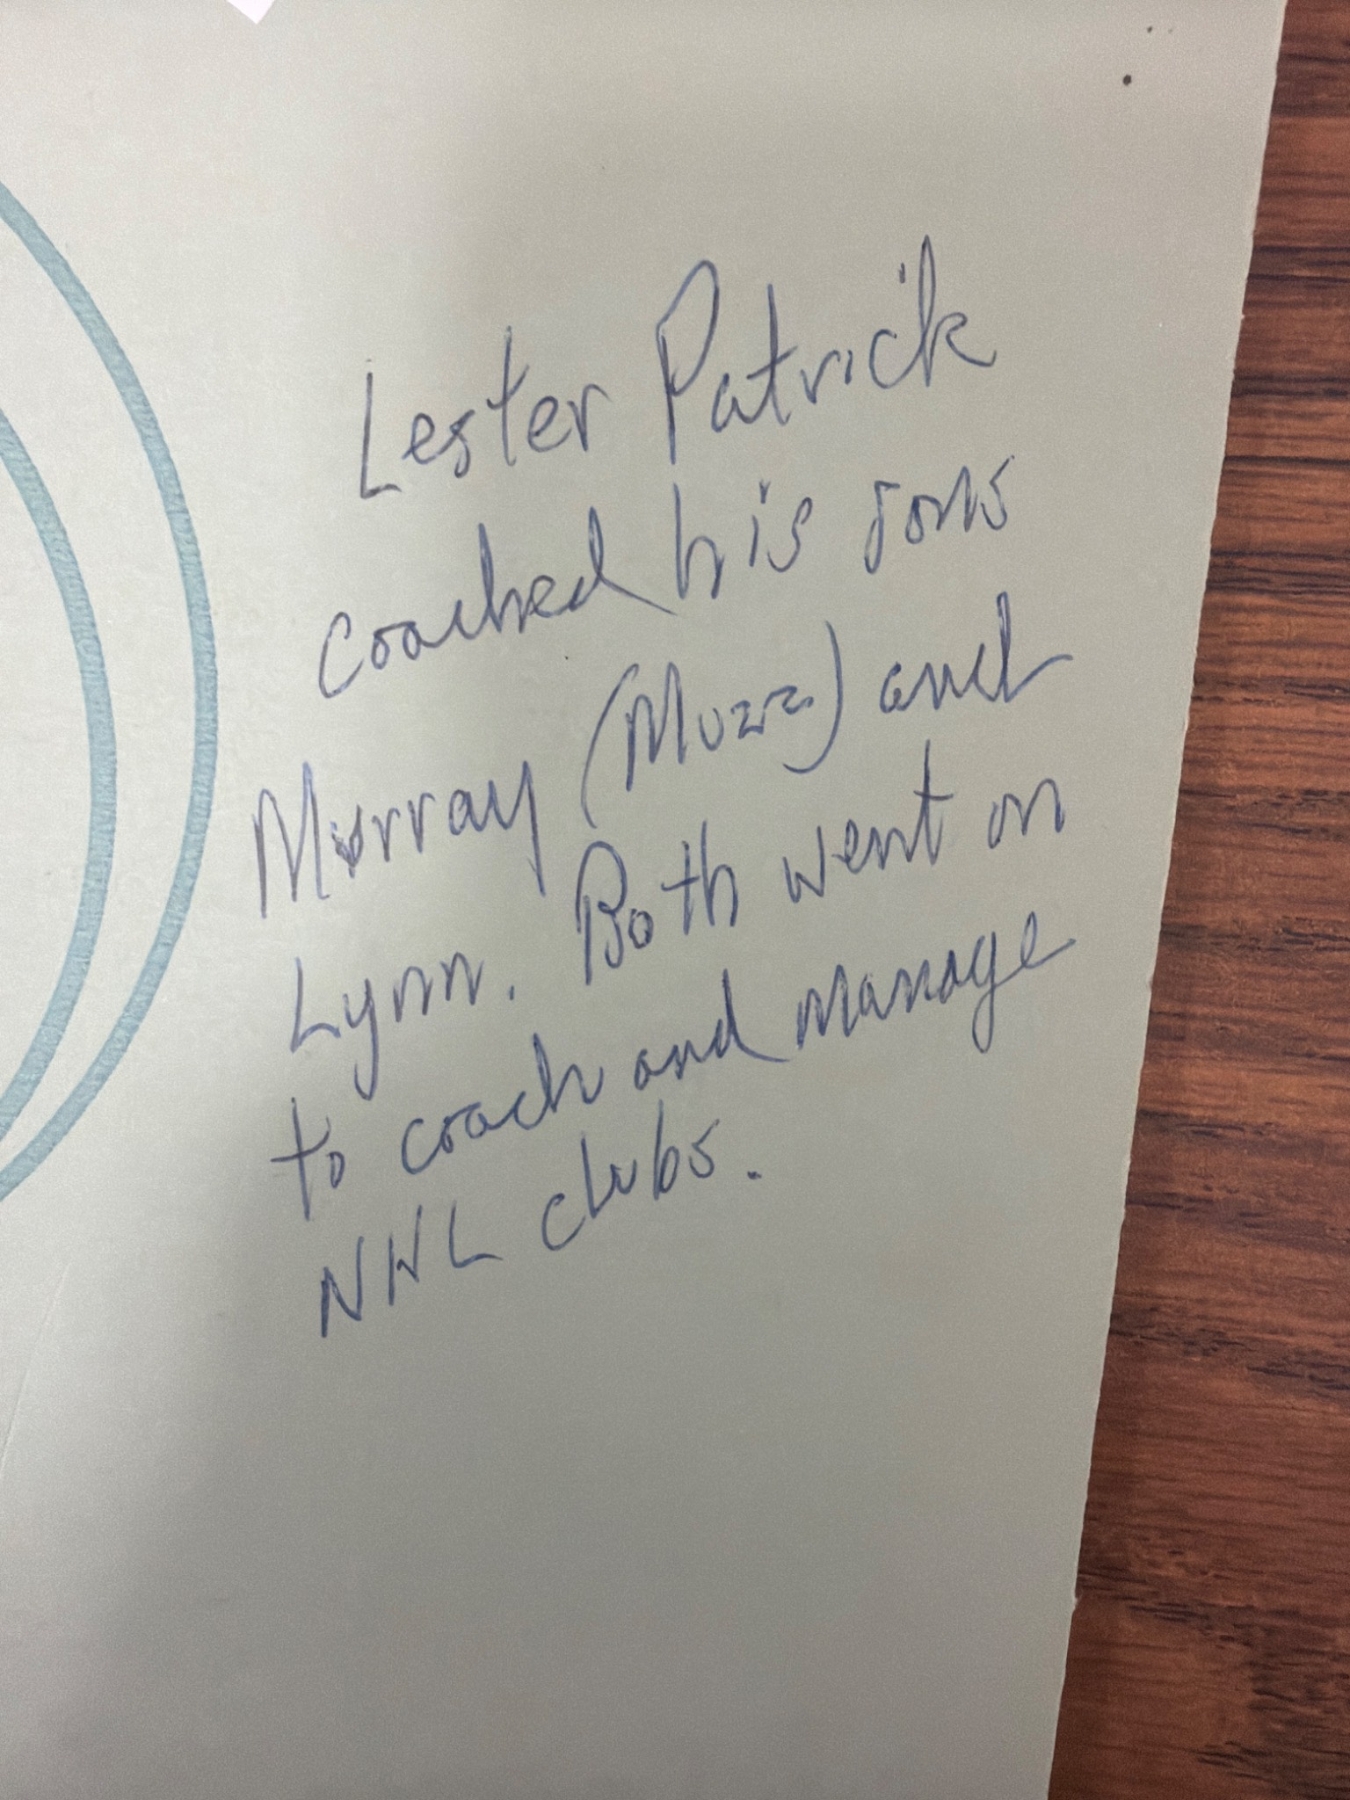 Lester Patrick
coached his sons
Murray (Muzz) and
Lynn. Both went on
to coach and manage
NHL clubs.